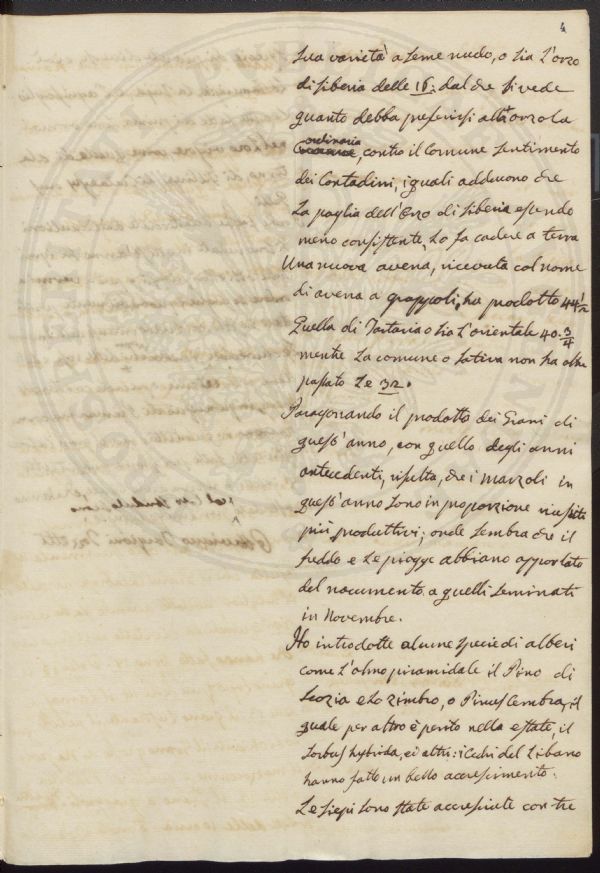 4
sua varietà a seme nudo, o sia l'orzo
di siberia delle 16: dal che si vede
quanto debba preferirsi alla orzola
ordinaria
, contro il comune sentimento
dei Contadini, i quali adducono che
la paglia dell'Orzo di siberia essendo
meno consistente, lo fa cadere a terra
Una nuova avena, ricevuta col nome
di avena a grappoli, ha prodotto 44 1/2
Quella di Tartaria o sia l'orientale 40. 3/4
mentre la comune o sativa non ha oltre
passato le 32.
Paragonando il prodotto dei Grani di
quest'anno, con quello degli anni
antecedenti, risulta, che i marzoli in
quest'anno sono in proporzione riusciti
più produttivi; onde sembra che il
freddo e le piogge abbiano apportato
del nocumento a quelli seminati
in Novembre.
Ho introdotte alcune specie di alberi
come l'olmo piramidale il Pino di
Scozia e lo zimbro, o Pinus Cembra, il
quale per altro è perito nella estate, il
Sorbus hybrida, ed altri: i Cedri del Libano
hanno fatto un bello accrescimento.
Le siepi sono state accresciute con tre